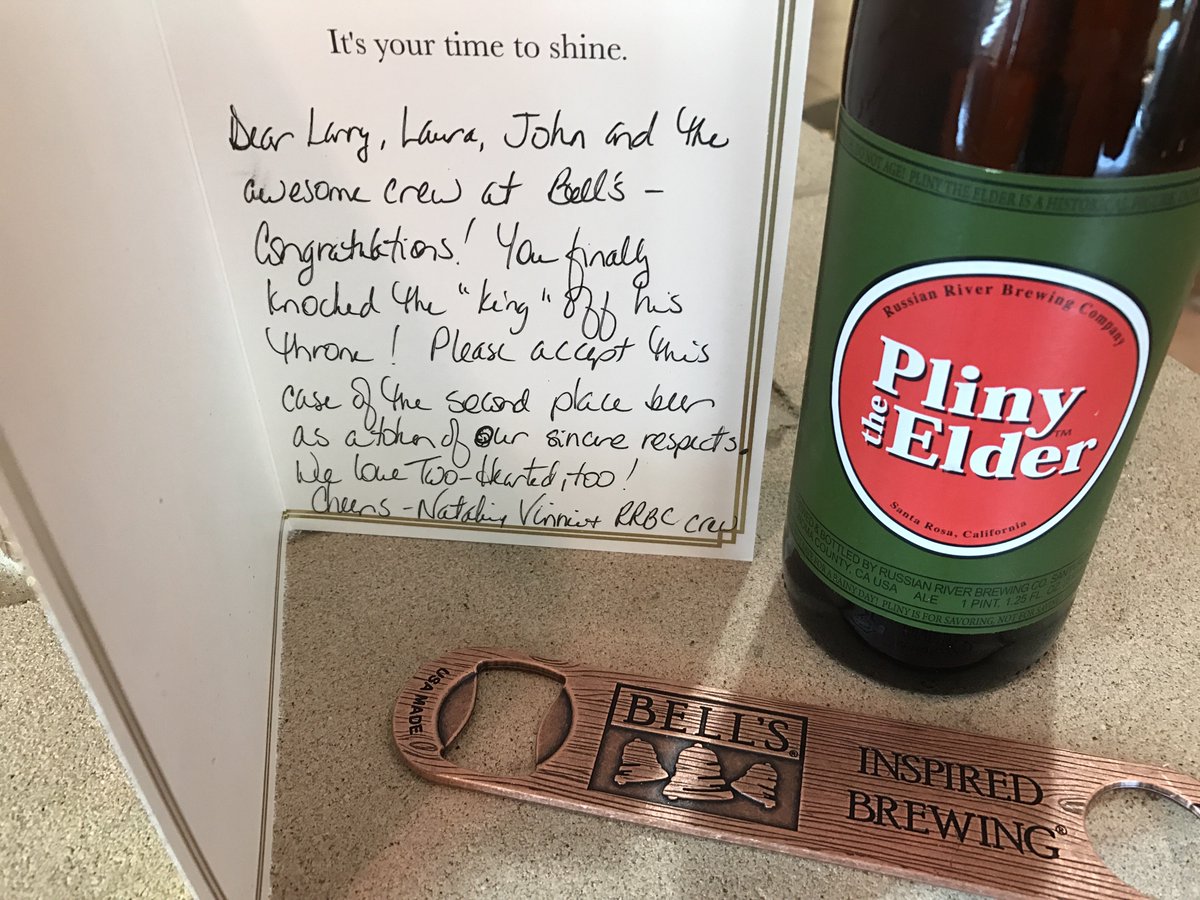 It's your time to shine.
Dear Larry, Laura, John and the
awesome crew at Bell's -
Congratulations! You finally
knocked the "king" off his
throne! Please accept this
case of the second place beer
as a token of our sincere respects.
We love Two-Hearted, too!
Cheers - Natalie, Vinnie + RRBC crew
DO NOT AGE! PLINY THE ELDER IS A HISTORICAL
Russian River Brewing Company
Pliny
the
Elder™
Santa Rosa, California
& BOTTLED BY RUSSIAN RIVER BREWING CO. SAN
COUNTY, CA USA ALE 1 PINT, 1.25 FL.
FOR A RAINY DAY! PLINY IS FOR SAVORING, NOT FOR SAV
USA MADE
BELL'S®
INSPIRED
BREWING®